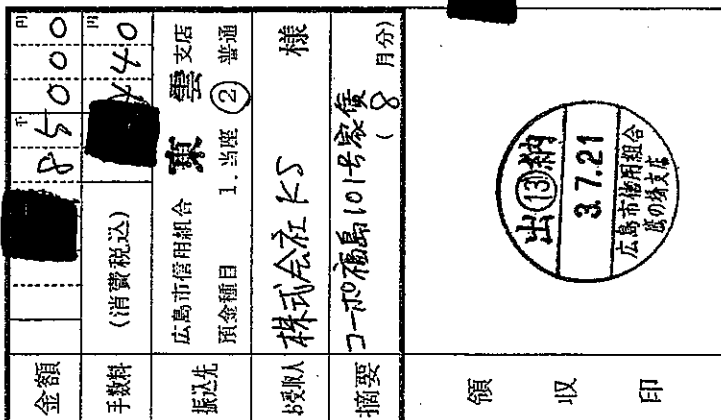 金額 千 円 85000
手数料 (消費税込) 円 440
振込先 広島市信用組合 東雲支店
預金種目 1. 当座 ② 普通
お受取人 株式会社KS 様
摘要 コーポ福島101号家賃
(8月分)
領収印
出⑬納
3.7.21
広島市信用組合